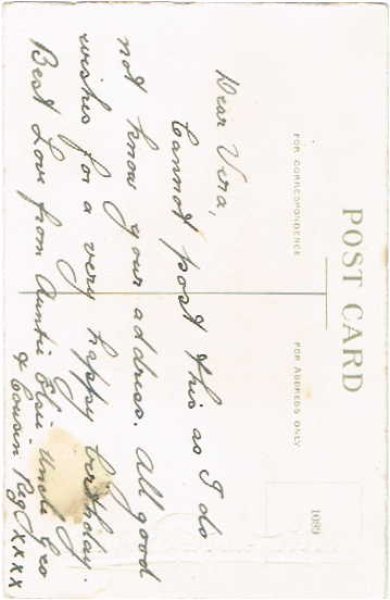 POST CARD
FOR CORRESPONDENCE
FOR ADDRESS ONLY
1089
Dear Vera,
Cannot post this as I do
not know your address. All good
wishes for a very happy birthday.
Best Love from Auntie Elsie Uncle Geo
& Cousin Reg xxxx